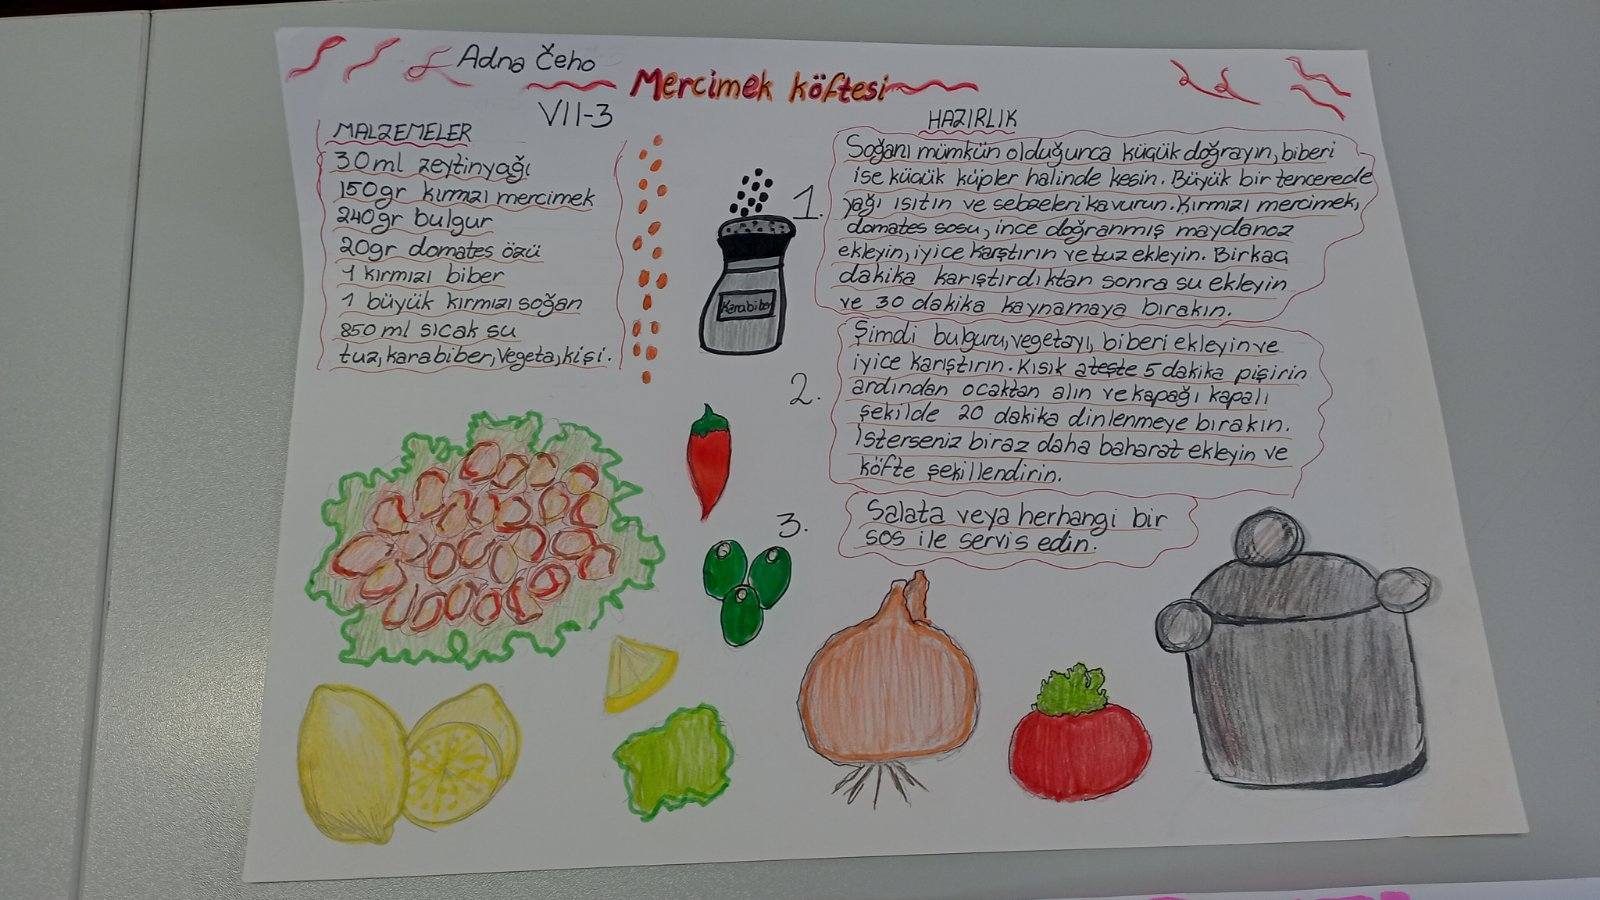 Adna Čeho
VII-3
Mercimek köftesi
MALZEMELER
30ml zeytinyağı
150gr kırmızı mercimek
240gr bulgur
20gr domates özü
1 kırmızı biber
1 büyük kırmızı soğan
850 ml sıcak su
tuz, karabiber, vegeta, kişi.
Karabiber
HAZIRLIK
1.
Soğanı mümkün olduğunca küçük doğrayın, biberi
ise küçük küpler halinde kesin. Büyük bir tencerede
yağı ısıtın ve sebzeleri kavurun. Kırmızı mercimek,
domates sosu, ince doğranmış maydanoz
ekleyin, iyice karştırın ve tuz ekleyin. Birkaç
dakika karıştırdıktan sonra su ekleyin
ve 30 dakika kaynamaya bırakın.
2.
Şimdi bulguru, vegetayı, biberi ekleyin ve
iyice karıştırın. Kısık ateşte 5 dakika pişirin
ardından ocaktan alın ve kapağı kapalı
şekilde 20 dakika dinlenmeye bırakın.
İsterseniz biraz daha baharat ekleyin ve
köfte şekillendirin.
3.
Salata veya herhangi bir
sos ile servis edin.